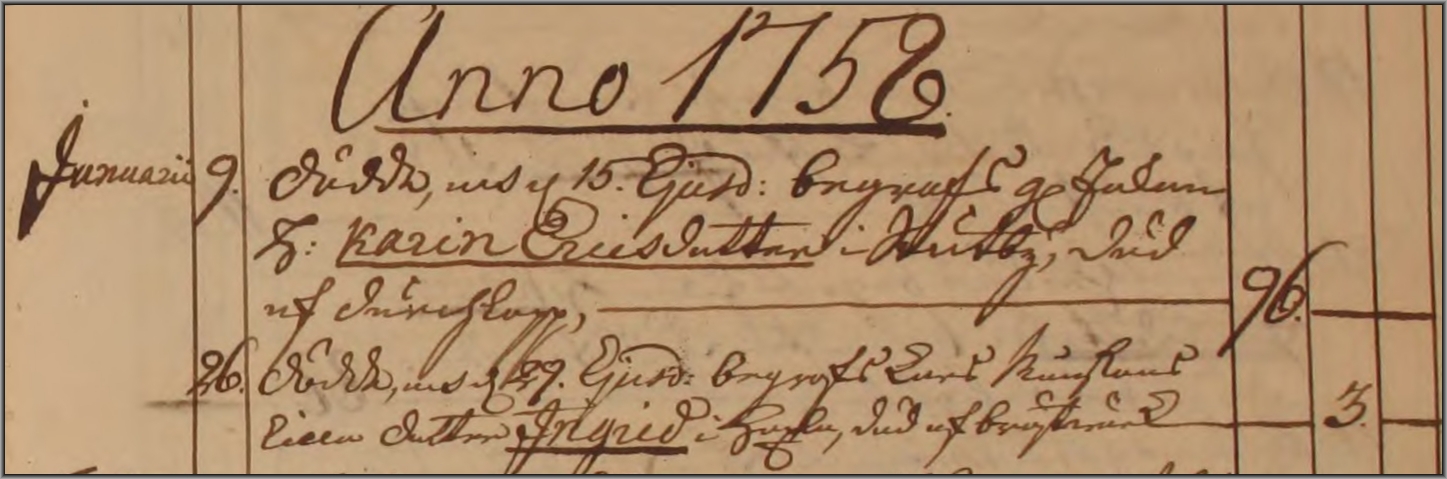 Anno 1758.
Januarii 9. dödde, och d 15. Ejusd: begrofs gl Jadan
H: Karin Ericsdotter i, död
af durchlopp, 96.
26. dödde, och d 29. Ejusd: begrofs Lars
Lilla dotter Ingrid i, död af bröstwärk 3.